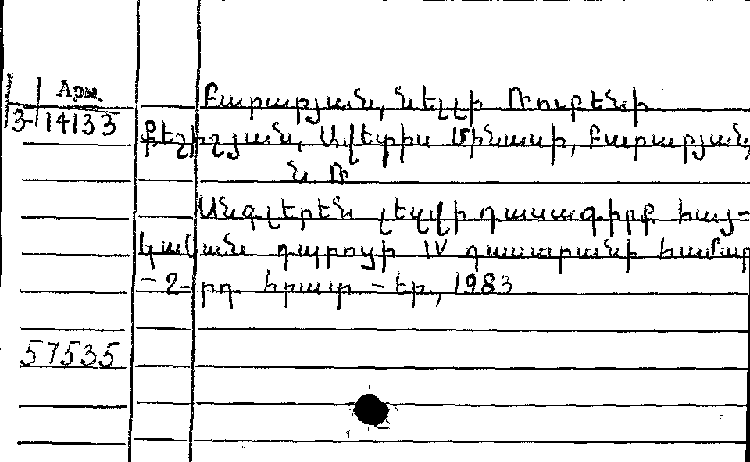 Арм.
3- 14133
Բարաբյան, Նելլի Ռուբենի
Քեշիշյան, Ավետիս Մինասի, Բարաբյան,
Ն. Ռ
Անգլերեն լեզվի դասագիրք հայ-
կական դպրոցի IV դասարանի համար
- 2-րդ հրատ - Եր., 1983
57535